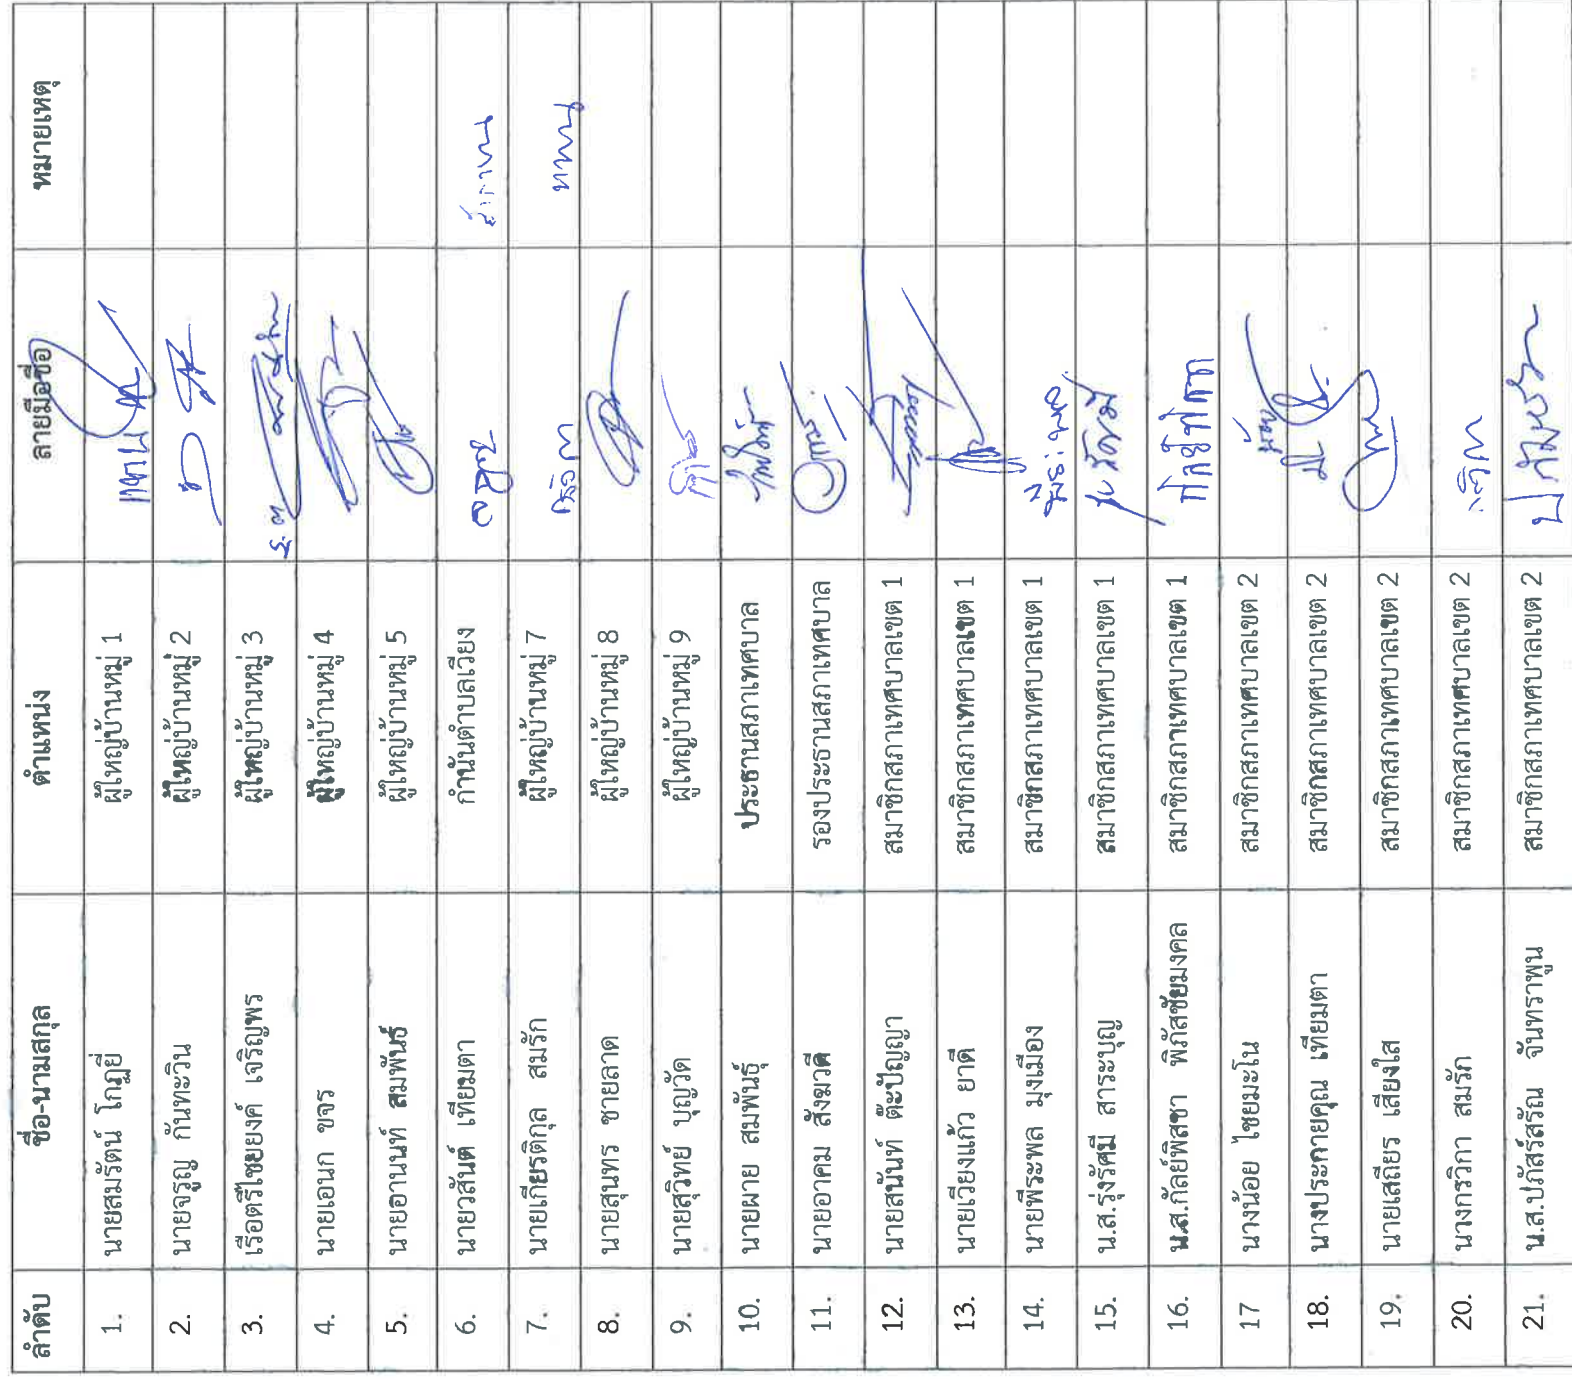 ลำดับ ชื่อ-นามสกุล ตำแหน่ง ลายมือชื่อ หมายเหตุ
1. นายสมรัตน์ โกฏยี่ ผู้ใหญ่บ้านหมู่ 1
2. นายจรูญ กันทะวิน ผู้ใหญ่บ้านหมู่ 2
3. เรือตรีไชยยงค์ เจริญพร ผู้ใหญ่บ้านหมู่ 3
4. นายเอนก ขจร ผู้ใหญ่บ้านหมู่ 4
5. นายอานนท์ สมพันธ์ ผู้ใหญ่บ้านหมู่ 5
6. นายวสันต์ เทียมตา กำนันตำบลเวียง
7. นายเกียรติกุล สมรัก ผู้ใหญ่บ้านหมู่ 7 แทน
8. นายสุนทร ชายลาด ผู้ใหญ่บ้านหมู่ 8
9. นายสุวิทย์ บุญวัด ผู้ใหญ่บ้านหมู่ 9
10. นายผาย สมพันธุ์ ประธานสภาเทศบาล
11. นายอาคม สังฆวดี รองประธานสภาเทศบาล
12. นายสนันท์ ต๊ะปัญญา สมาชิกสภาเทศบาลเขต 1
13. นายเวียงแก้ว ยาดี สมาชิกสภาเทศบาลเขต 1
14. นายพีระพล มุงเมือง สมาชิกสภาเทศบาลเขต 1
15. น.ส.รุ่งรัศมี สาระบุญ สมาชิกสภาเทศบาลเขต 1
16. น.ส.กัลย์พิสชา พิภัสชัยมงคล สมาชิกสภาเทศบาลเขต 1
17 นางน้อย ไชยมะโน สมาชิกสภาเทศบาลเขต 2
18. นางประกายคุณ เทียมตา สมาชิกสภาเทศบาลเขต 2
19. นายเสถียร เสียงใส สมาชิกสภาเทศบาลเขต 2
20. นางกรวิกา สมรัก สมาชิกสภาเทศบาลเขต 2
21. น.ส.ปภัสร์สรัณ จันทราพูน สมาชิกสภาเทศบาลเขต 2